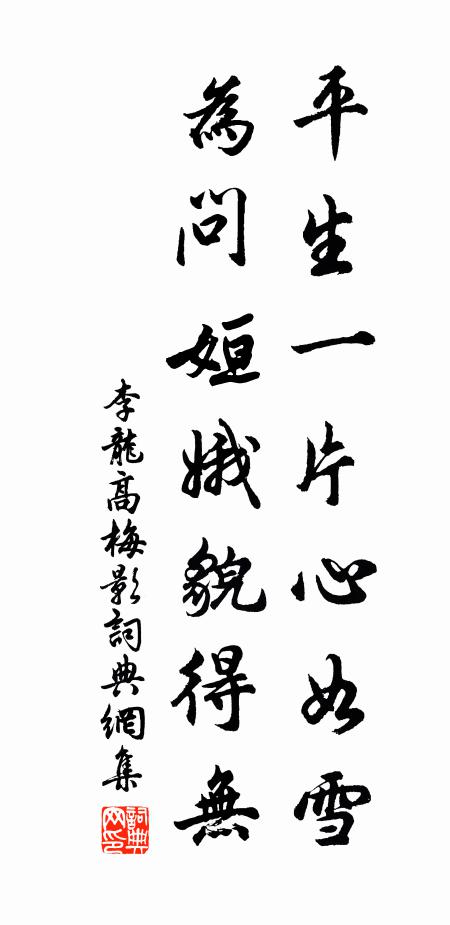 平生一片心如雪
為問姮娥貌得無
李龍高梅影詞典網集
詞典网印